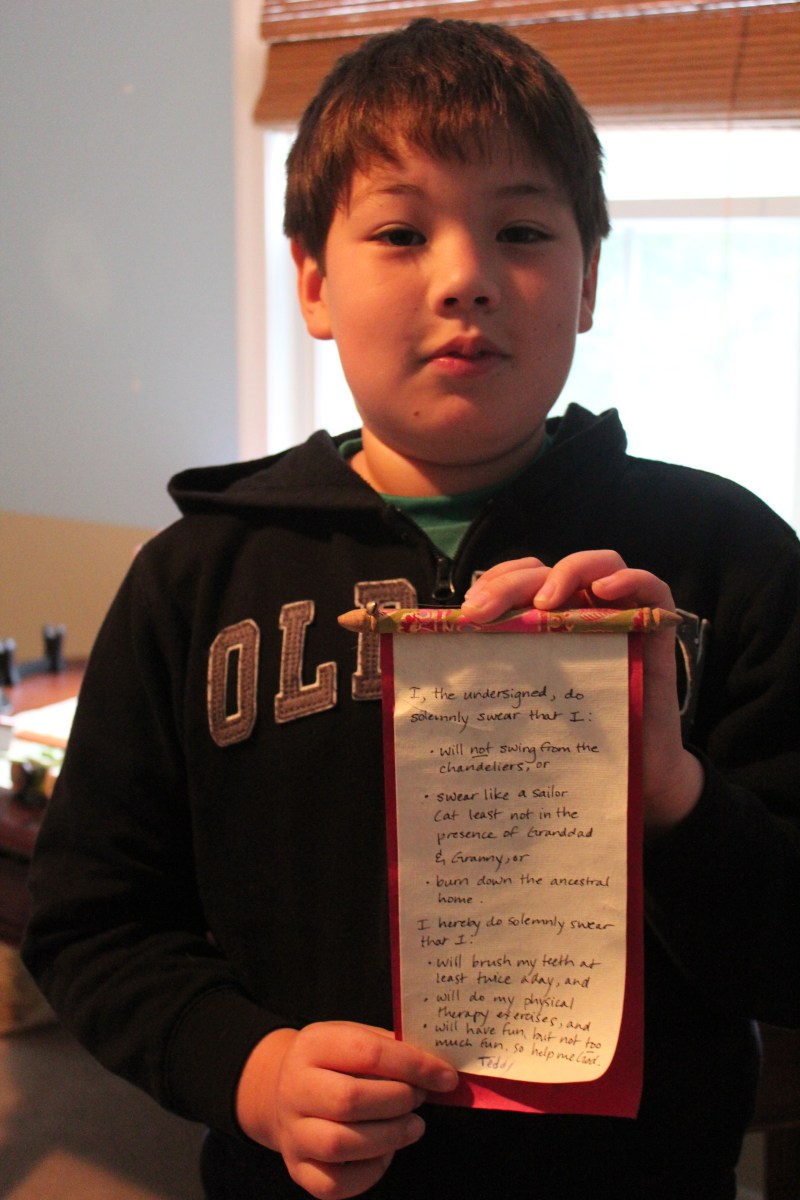 OLD
I, the undersigned, do
solemnly swear that I:
• will not swing from the
chandeliers, or
• swear like a sailor
(at least not in the
presence of Granddad
& Granny, or
• burn down the ancestral
home.
I hereby do solemnly swear
that I:
• will brush my teeth at
least twice a day, and
• will do my physical
therapy exercises, and
• will have fun, but not too
much fun, so help me God.
Teddy